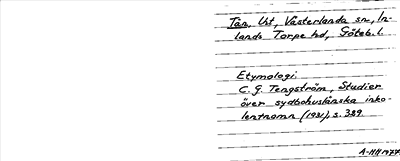 Tån, Ust, Västerlanda sn, In-
lands Torpe hd, Göteb. l.
Etymologi
C. G. Tengström, Studier
över sydbohuslänska inko-
lentnamn (1931), s. 389.
A-HH 1977